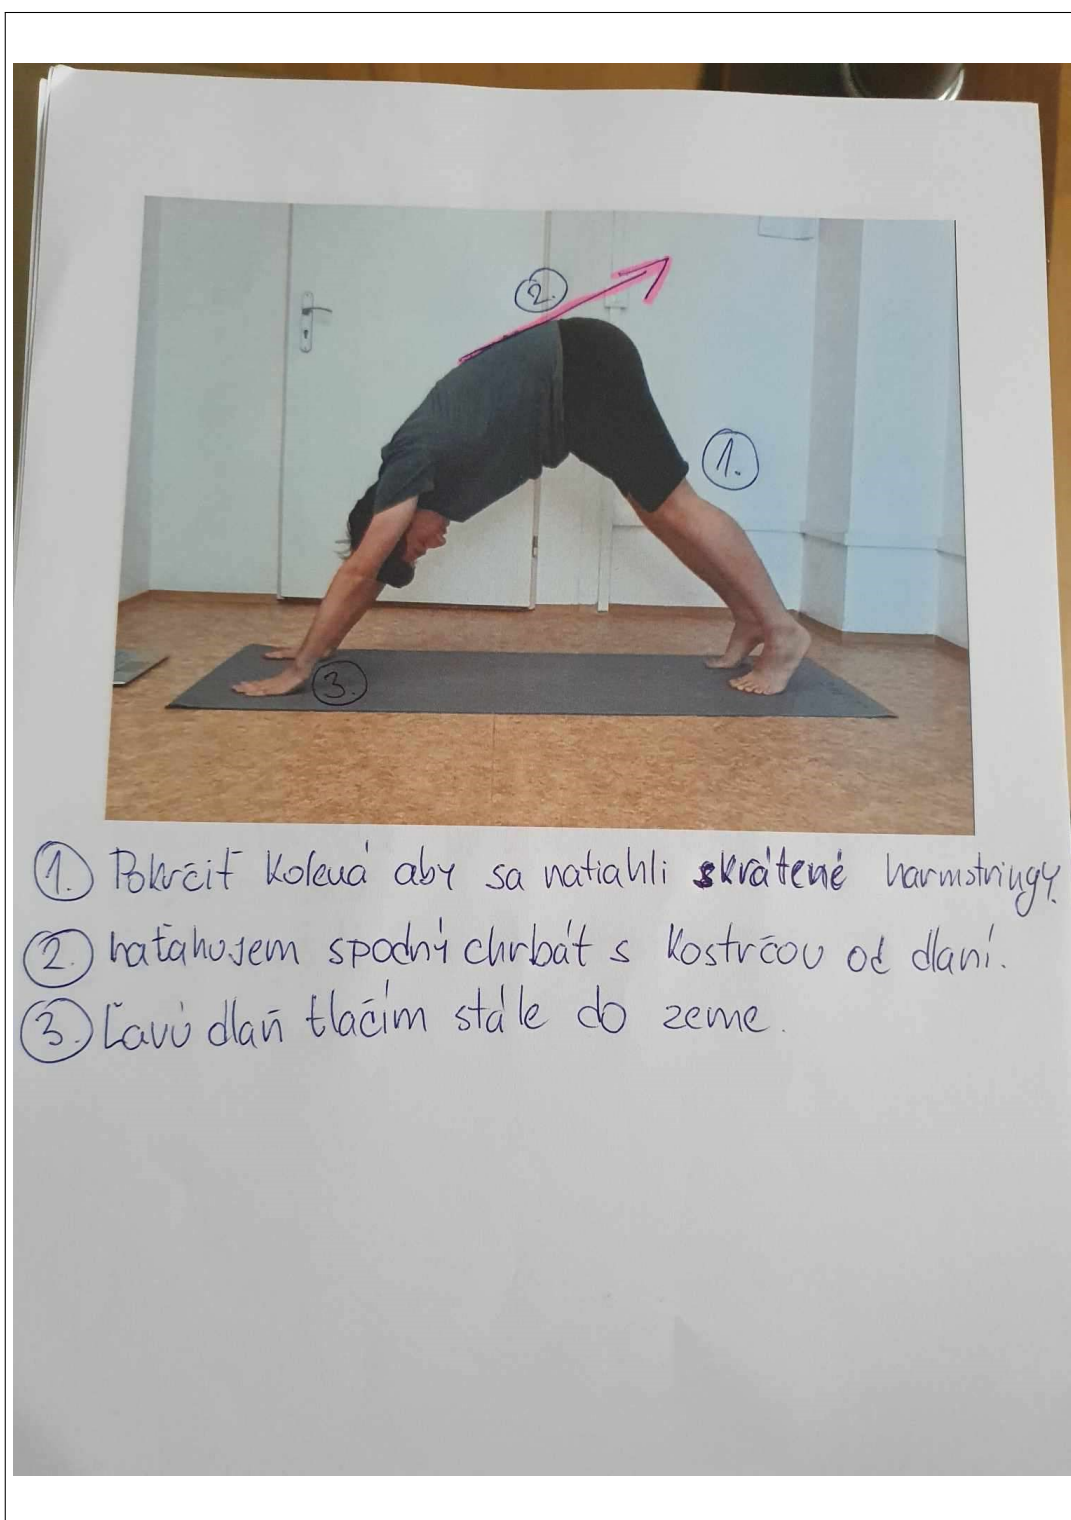 2.
1.
3.
1. Pokrčiť kolená aby sa natiahli skrátené harmstringy.
2. naťahujem spodný chrbát s kostrčou od dlaní.
3. Ľavú dlaň tlačím stále do zeme.